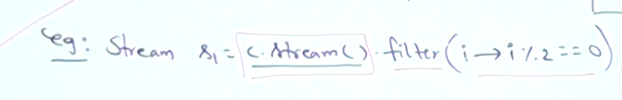 eg: Stream s1 = c.stream().filter(i→i%2==0)